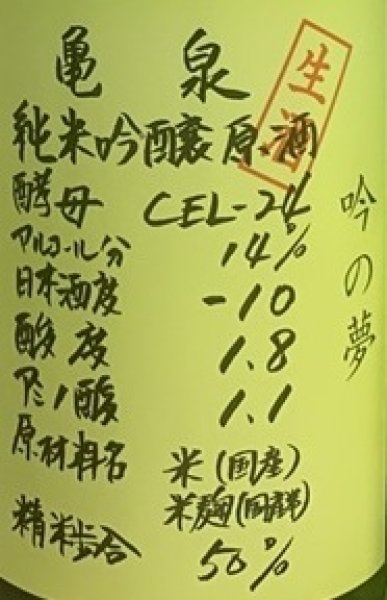 亀泉
生酒
純米吟醸原酒
酵母 CEL-24
アルコール分 14%
日本酒度 -10
酸度 1.8
アミノ酸 1.1
原材料名 米(国産)
米麹(国産米)
精米歩合 50%
吟の夢